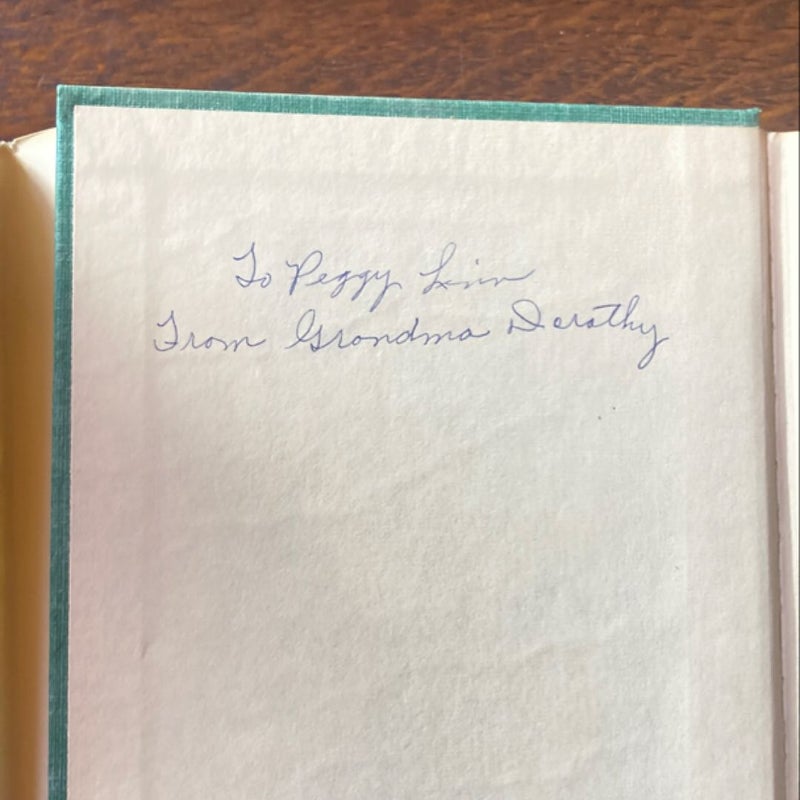 To Peggy Linn
From Grandma Dorothy